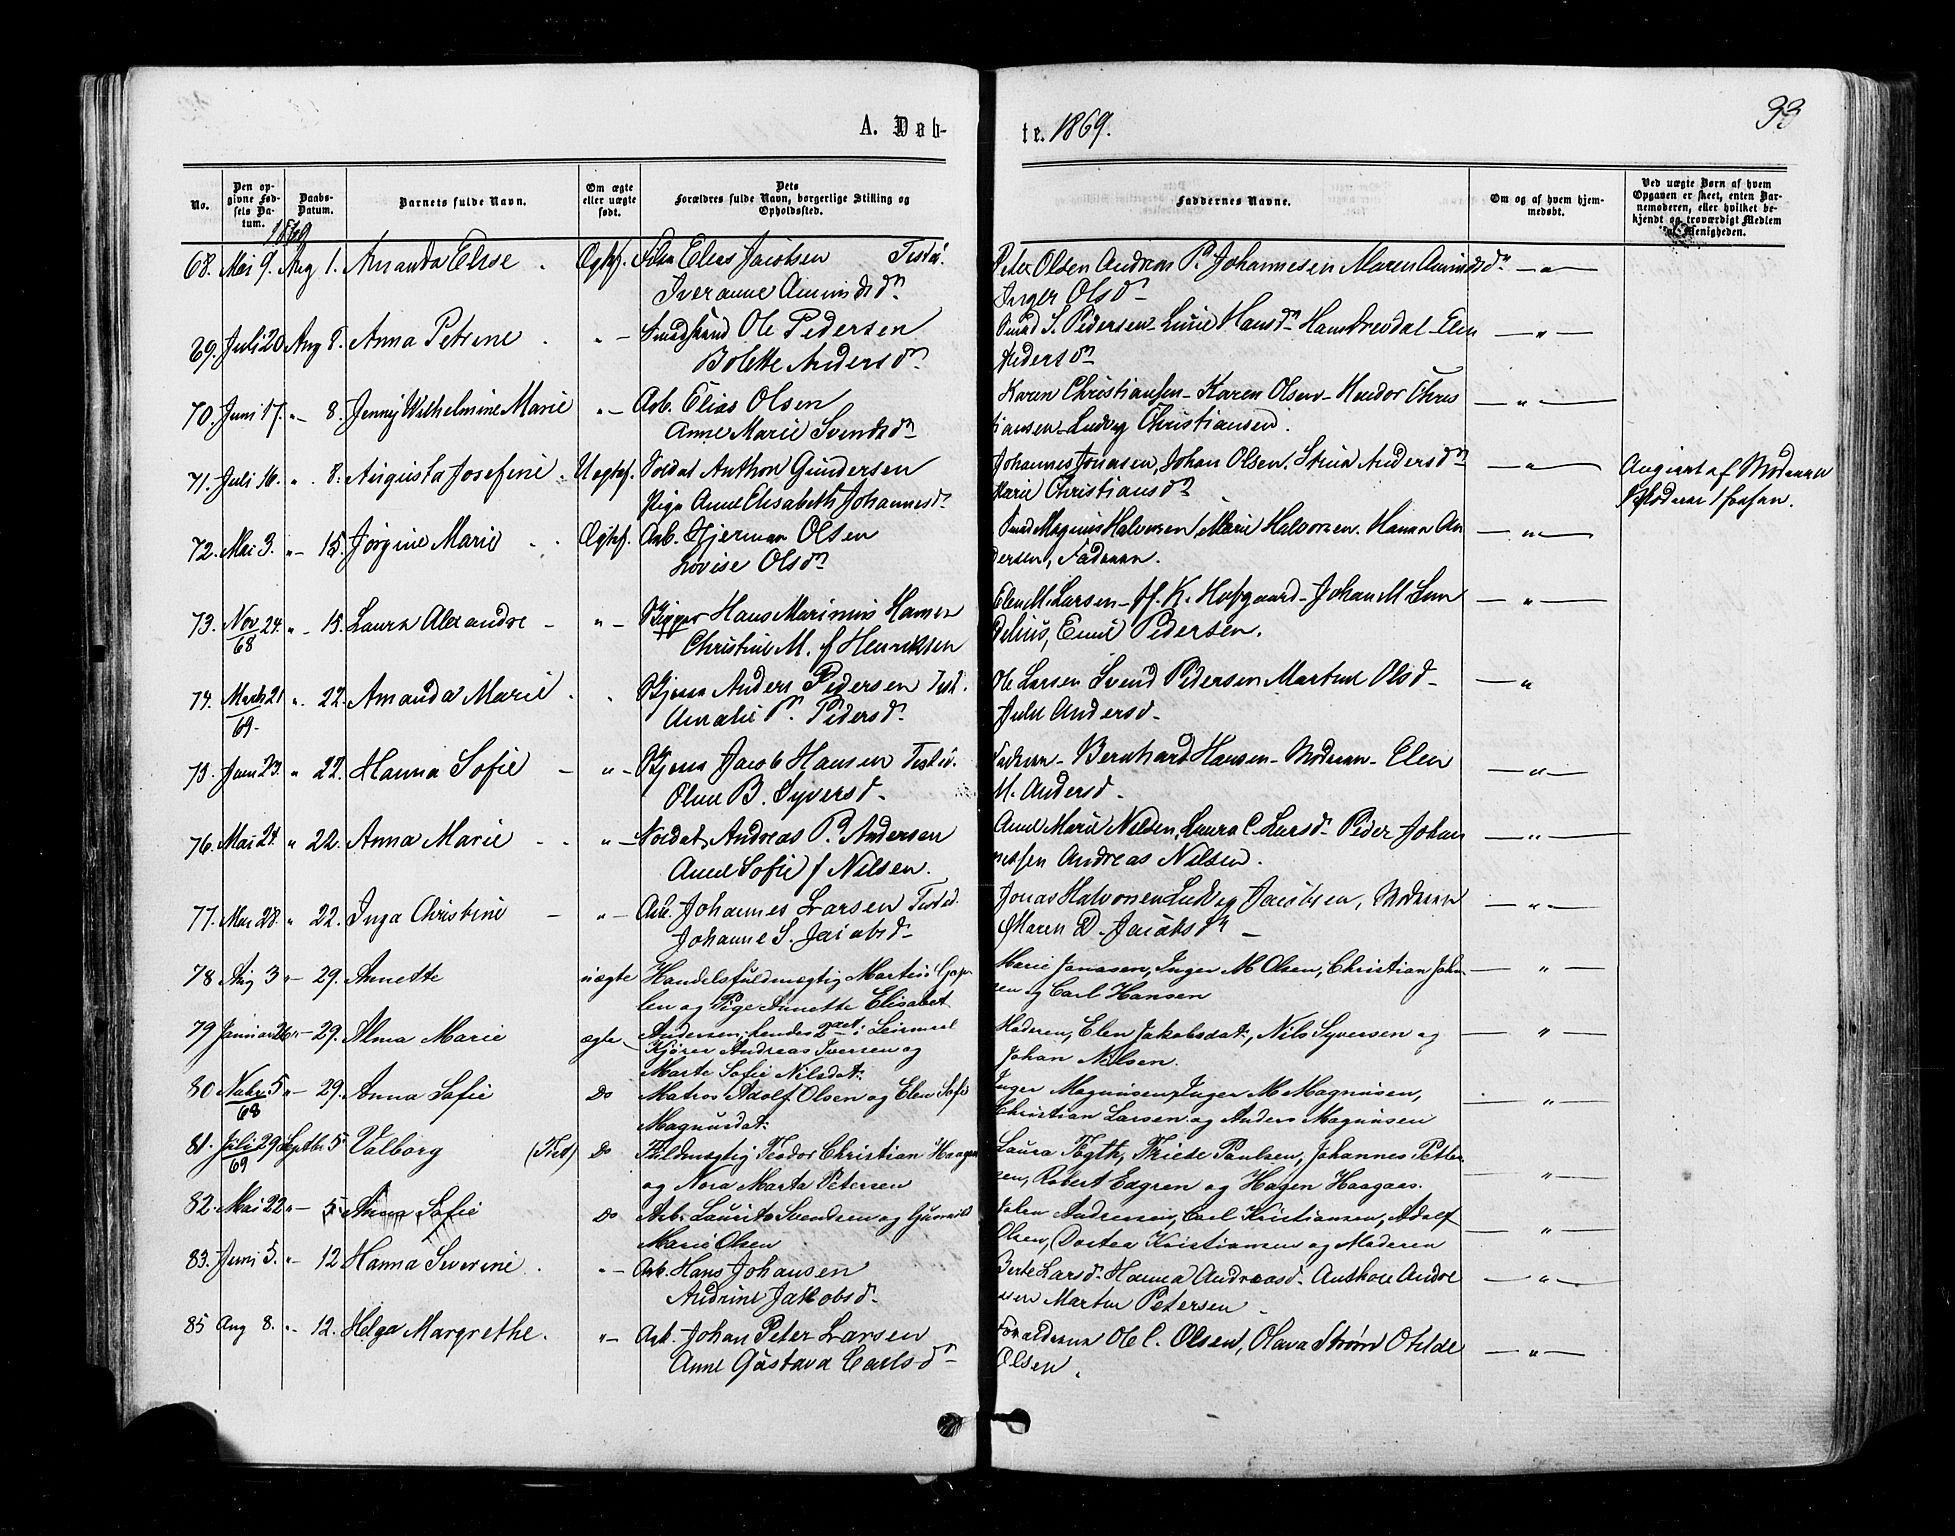 33
A. Døb-
te. 1869.
No.
Den op-
givne Fød-
sels Da-
tum.
Daabs-
Datum.
Barnets fulde Navn.
Om ægte
eller uægte
født.
Dets
Forældres fulde Navn, borgerlige Stilling og
Opholdssted.
Faddernes Navne.
Om og af hvem hjem-
medøbt.
Ved uægte Børn af hvem
Opgaven er skeet, enten Bar-
nemoderen, eller hvilket be-
kjendt og troværdigt Medlem
af Menigheden.
1869
68. Mai 9. Aug 1. Amanda Elise Ægtef. Elias Jacobsen Tisted. Peter Olsen Andreas P. Johannesen Maren Amundsdn — " —
Iveranne Amundsdn. Inger Olsdn
69. Juli 20 Aug 8. Anna Petrine " — Ole Pedersen S. Pedersen Lucie Hansdn Hans Elen — " —
Bolette Andersdn. Pedersdn
70. Juni 17. " 8. Jenny Wilhelmine Marie " — Arb. Elias Olsen Karen Christiansen - Karen Olsen - Chris — " —
Anne Marie Svendsdn tiansen - Ludvig Christiansen.
71. Juli 16. " 8. Augusta Josefine Uegtef. Soldat Anthon Gundersen Johannes Jonasen, Johan Olsen, Stina Andersdn — " — Angivet af Moderen
Pige Anne Elisabeth Johannesd. Marie Christiansdn
72. Mai 3. " 15. Jørgine Marie Ægtef. Arb. Hjerman Olsen Magnus Halvorsen, Marie Halvorsen. Hanna An — " —
Lovise Olsdn dersen, Faderen.
73. Nov 24. " 15. Laura Alexandre " — Skipper Hans Marinius Hansen Elen M. Larsen - H. K. Hofgaard - Johan M. — " —
68 Christine M. f Henriksen Emil Pedersen.
74. Marts 21 " 22. Amanda Marie " Anders Pedersen Tist. Ole Larsen Svend Pedersen Martine Olsd — "
69. Amalie P. Pedersd. Andersd.
75. Juni 23. " 22. Hanna Sofie " — Jacob Hansen Tisted. Faderen - Bernhard Hansen - Moderen - Elen — " —
Oline B. Syversd. M. Andersd.
76. Mai 24. " 22. Anna Marie " — Soldat Andreas P. Andersen Anne Marie Nilsen, Laura C. Larsd. Peder Johan — " —
Anne Sofie f Nilsen. nessen Andreas Nilsen.
77. Mai 28. " 22. Inga Christine " — Arb. Johannes Larsen Tisted. Jonas Halvorsen Ludvig Jacobsen, Moderen — " —
Johanne S. Jacobsd. Maren D. Jacobsdn
78 Aug 3 " 29. Annette uægte Handelsfuldmægtig Martius Marie Jonasen, Inger M Olsen, Christian Joha — " —
len og Pige Annette Elisabet sen og Carl Hansen
79 Januar 26 " 29. Alma Marie ægte Andersen, hendes 2det Leiermaal Moderen, Elen Jakobsdat:, Nils Syversen og — " —
Kjører Andreas Iversen og Johan Nilsen.
Marte Sofie Nilsdat:
80 Novbr 5 " 29. Anna Sofie Do Matros Adolf Olsen og Elen Sofie Inger Magnusen, Inger M Magnusen, — " —
68 Magnusdat: Christian Larsen og Anders Magnusen
81. Juli 29 Septbr 5 Valborg (Tist) Do Fuldmægtig Teodor Christian Haagen Laura Fogth, Triede Paulsen, Johannes Peter — " —
69 og Nora Marta Petersen sen, Robert Edgren og Hagen Haagaas.
82. Mai 22 " 5 Anna Sofie Do Arb. Laurits Svendsen og Gunnild Andersen, Carl Kristiansen, Adolf — " —
Marie Olsen Olsen, Dortea Kristiansen og Moderen
83. Juni 5. " 12 Hanna Severine " — Arb. Hans Johansen Berte Larsd. Hanna Andreasd. Anthon Andre — " —
Andrine Jakobsd. sen Martin Petersen
85 Aug 8. " 12. Helga Margrethe. " — Arb. Johan Peter Larsen Forældrene Ole C. Olsen, Olava Strøm Otilde — " —
Anne Gustava Carlsdn Olsen.